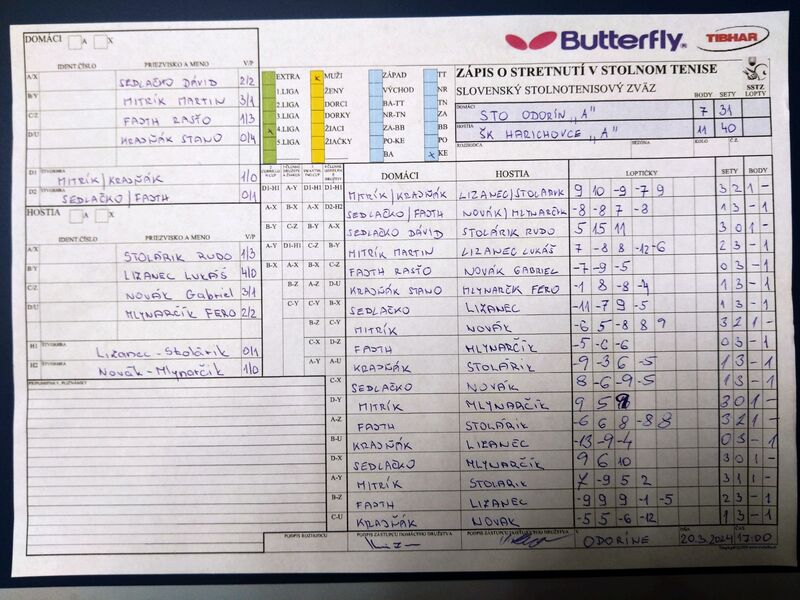 DOMÁCI A X
Butterfly
TIBHAR
IDENT.ČÍSLO PRIEZVISKO A MENO V/P
A/X SEDLAČKO DÁVID 2/2
B/Y MITRÍK MARTIN 3/1
C/Z FAJTH RASŤO 1/3
D/U KRAJŇÁK STANO 0/4
D1 ŠTVORHRA MITRÍK/KRAJŇÁK 1/0
D2 SEDLAČKO/FAJTH 0/1
HOSTIA A X
IDENT.ČÍSLO PRIEZVISKO A MENO V/P
A/X STOLÁRIK RUDO 1/3
B/Y LIZANEC LUKÁŠ 4/0
C/Z NOVÁK Gabriel 3/1
D/U MLYNARČÍK FERO 2/2
H1 ŠTVORHRA Lizanec-Stolárik 0/1
H2 Novák-Mlynarčík 1/0
PRIPOMIENKY, POZNÁMKY
EXTRA x MUŽI ZÁPAD TT
1.LIGA ŽENY VÝCHOD NR
2.LIGA DORCI BA-TT TN
3.LIGA DORKY NR-TN ZA
x 4.LIGA ŽIACI ZA-BB BB
5.LIGA ŽIAČKY PO-KE PO
BA x KE
ZÁPIS O STRETNUTÍ V STOLNOM TENISE
SLOVENSKÝ STOLNOTENISOVÝ ZVÄZ
SSTZ
BODY SETY LOPTY
DOMÁCI STO ODORÍN "A" 7 31
HOSTIA ŠK HARICHOVCE "A" 11 40
ROZHODCA SEZÓNA KOLO Č.Z.
DOMÁCI HOSTIA LOPTIČKY SETY BODY
D1-H1 A-Y D1-H1 D1-H1 MITRÍK/KRAJŇÁK LIZANEC/STOLÁRIK 9 10 -9 -7 9 3 2 1 -
A-X B-X A-X D2-H2 SEDLAČKO/FAJTH NOVÁK/MLYNARČÍK -8 -8 7 -8 1 3 - 1
B-Y C-Z B-Y A-X SEDLAČKO DÁVID STOLÁRIK RUDO 5 15 11 3 0 1 -
A-Y D1-H1 C-Z B-Y MITRÍK MARTIN LIZANEC LUKÁŠ 7 -8 8 -12 -6 2 3 - 1
B-X A-X B-X C-Z FAJTH RASŤO NOVÁK GABRIEL -7 -9 -5 0 3 - 1
C-Z A-Z D-U KRAJŇÁK STANO MLYNARČÍK FERO -1 8 -8 -4 1 3 - 1
C-Y B-X SEDLAČKO LIZANEC -11 -7 9 -5 1 3 - 1
B-Z C-Y MITRÍK NOVÁK -6 5 -8 8 9 3 2 1 -
C-X D-Z FAJTH MLYNARČÍK -5 -6 -6 0 3 - 1
A-Y A-U KRAJŇÁK STOLÁRIK -9 -3 6 -5 1 3 - 1
C-X SEDLAČKO NOVÁK 8 -6 -9 -5 1 3 - 1
D-Y MITRÍK MLYNARČÍK 9 5 9 3 0 1 -
A-Z FAJTH STOLÁRIK -6 6 8 -8 8 3 2 1
B-U KRAJŇÁK LIZANEC -13 -9 -4 0 3 - 1
D-X SEDLAČKO MLYNARČÍK 9 6 10 3 0 1 -
A-Y MITRÍK STOLÁRIK 7 -9 5 2 3 1 1 -
B-Z FAJTH LIZANEC -9 9 9 -1 -5 2 3 - 1
C-U KRAJŇÁK NOVÁK -5 5 -6 -12 1 3 - 1
PODPIS ROZHODCU PODPIS ZÁSTUPCU DOMÁCEHO DRUŽSTVA PODPIS ZÁSTUPCU HOSŤUJÚCEHO DRUŽSTVA V ODORÍNE DŇA 20.3.2024 ČAS 17:00